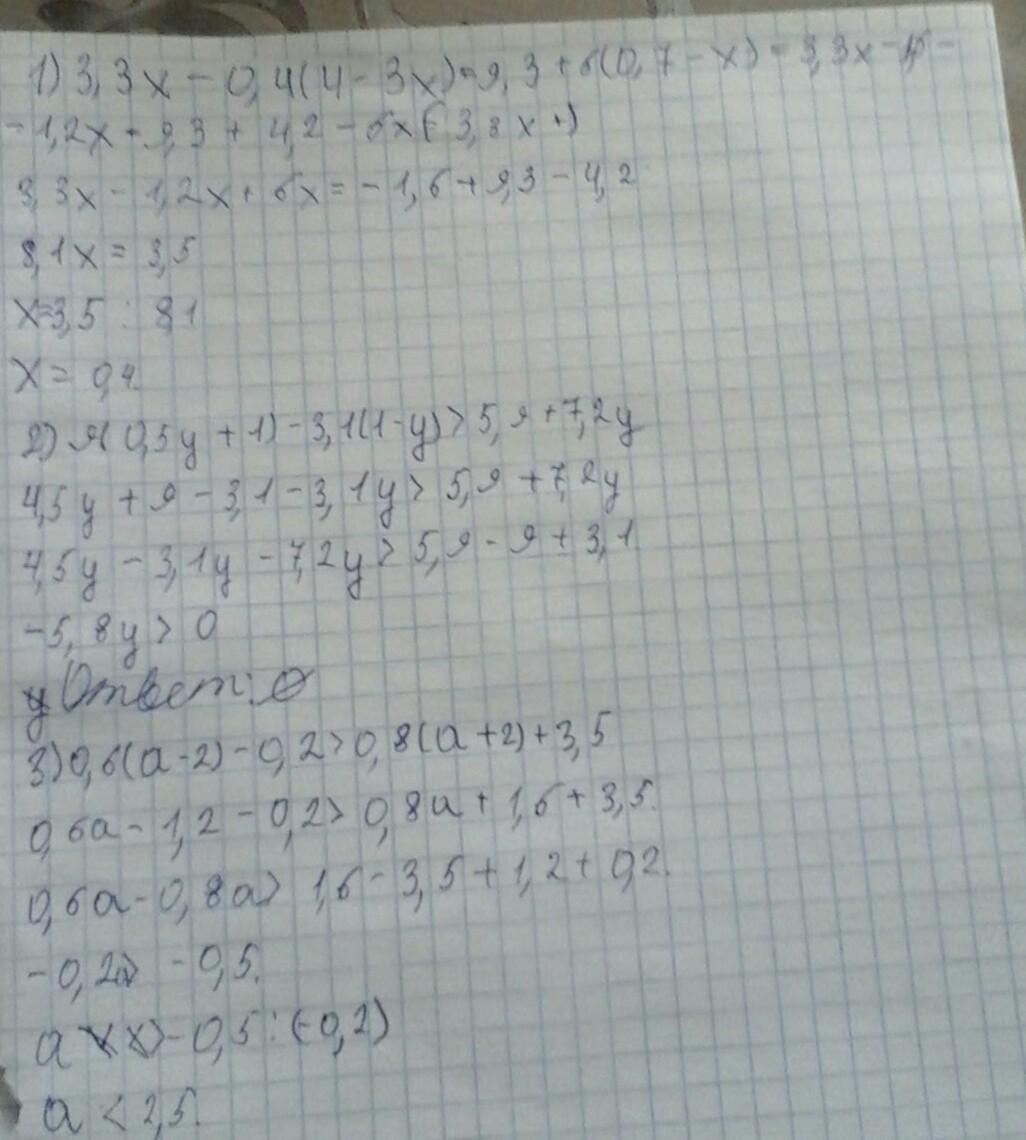 1) 3,3x - 0,4(4 - 3x) = 9,3 + 6(0,7 - x) = 3,3x - 1,6 -
- 1,2x = 9,3 + 4,2 - 6x
3,3x - 1,2x + 6x = - 1,6 + 9,3 - 4,2
8,1x = 3,5
x = 3,5 : 8,1
x = 0,4.
2) 9(0,5y + 1) - 3,1(1 - y) > 5,9 + 7,2y
4,5y + 9 - 3,1 - 3,1y > 5,9 + 7,2y
4,5y - 3,1y - 7,2y > 5,9 - 9 + 3,1
-5,8y > 0
Ответ: ∅
3) 0,6(a - 2) - 0,2 > 0,8(a + 2) + 3,5
0,6a - 1,2 - 0,2 > 0,8a + 1,6 + 3,5.
0,6a - 0,8a > 1,6 - 3,5 + 1,2 + 0,2.
- 0,2a > - 0,5.
a - 0,5 : (-0,2)
a < 2,5.